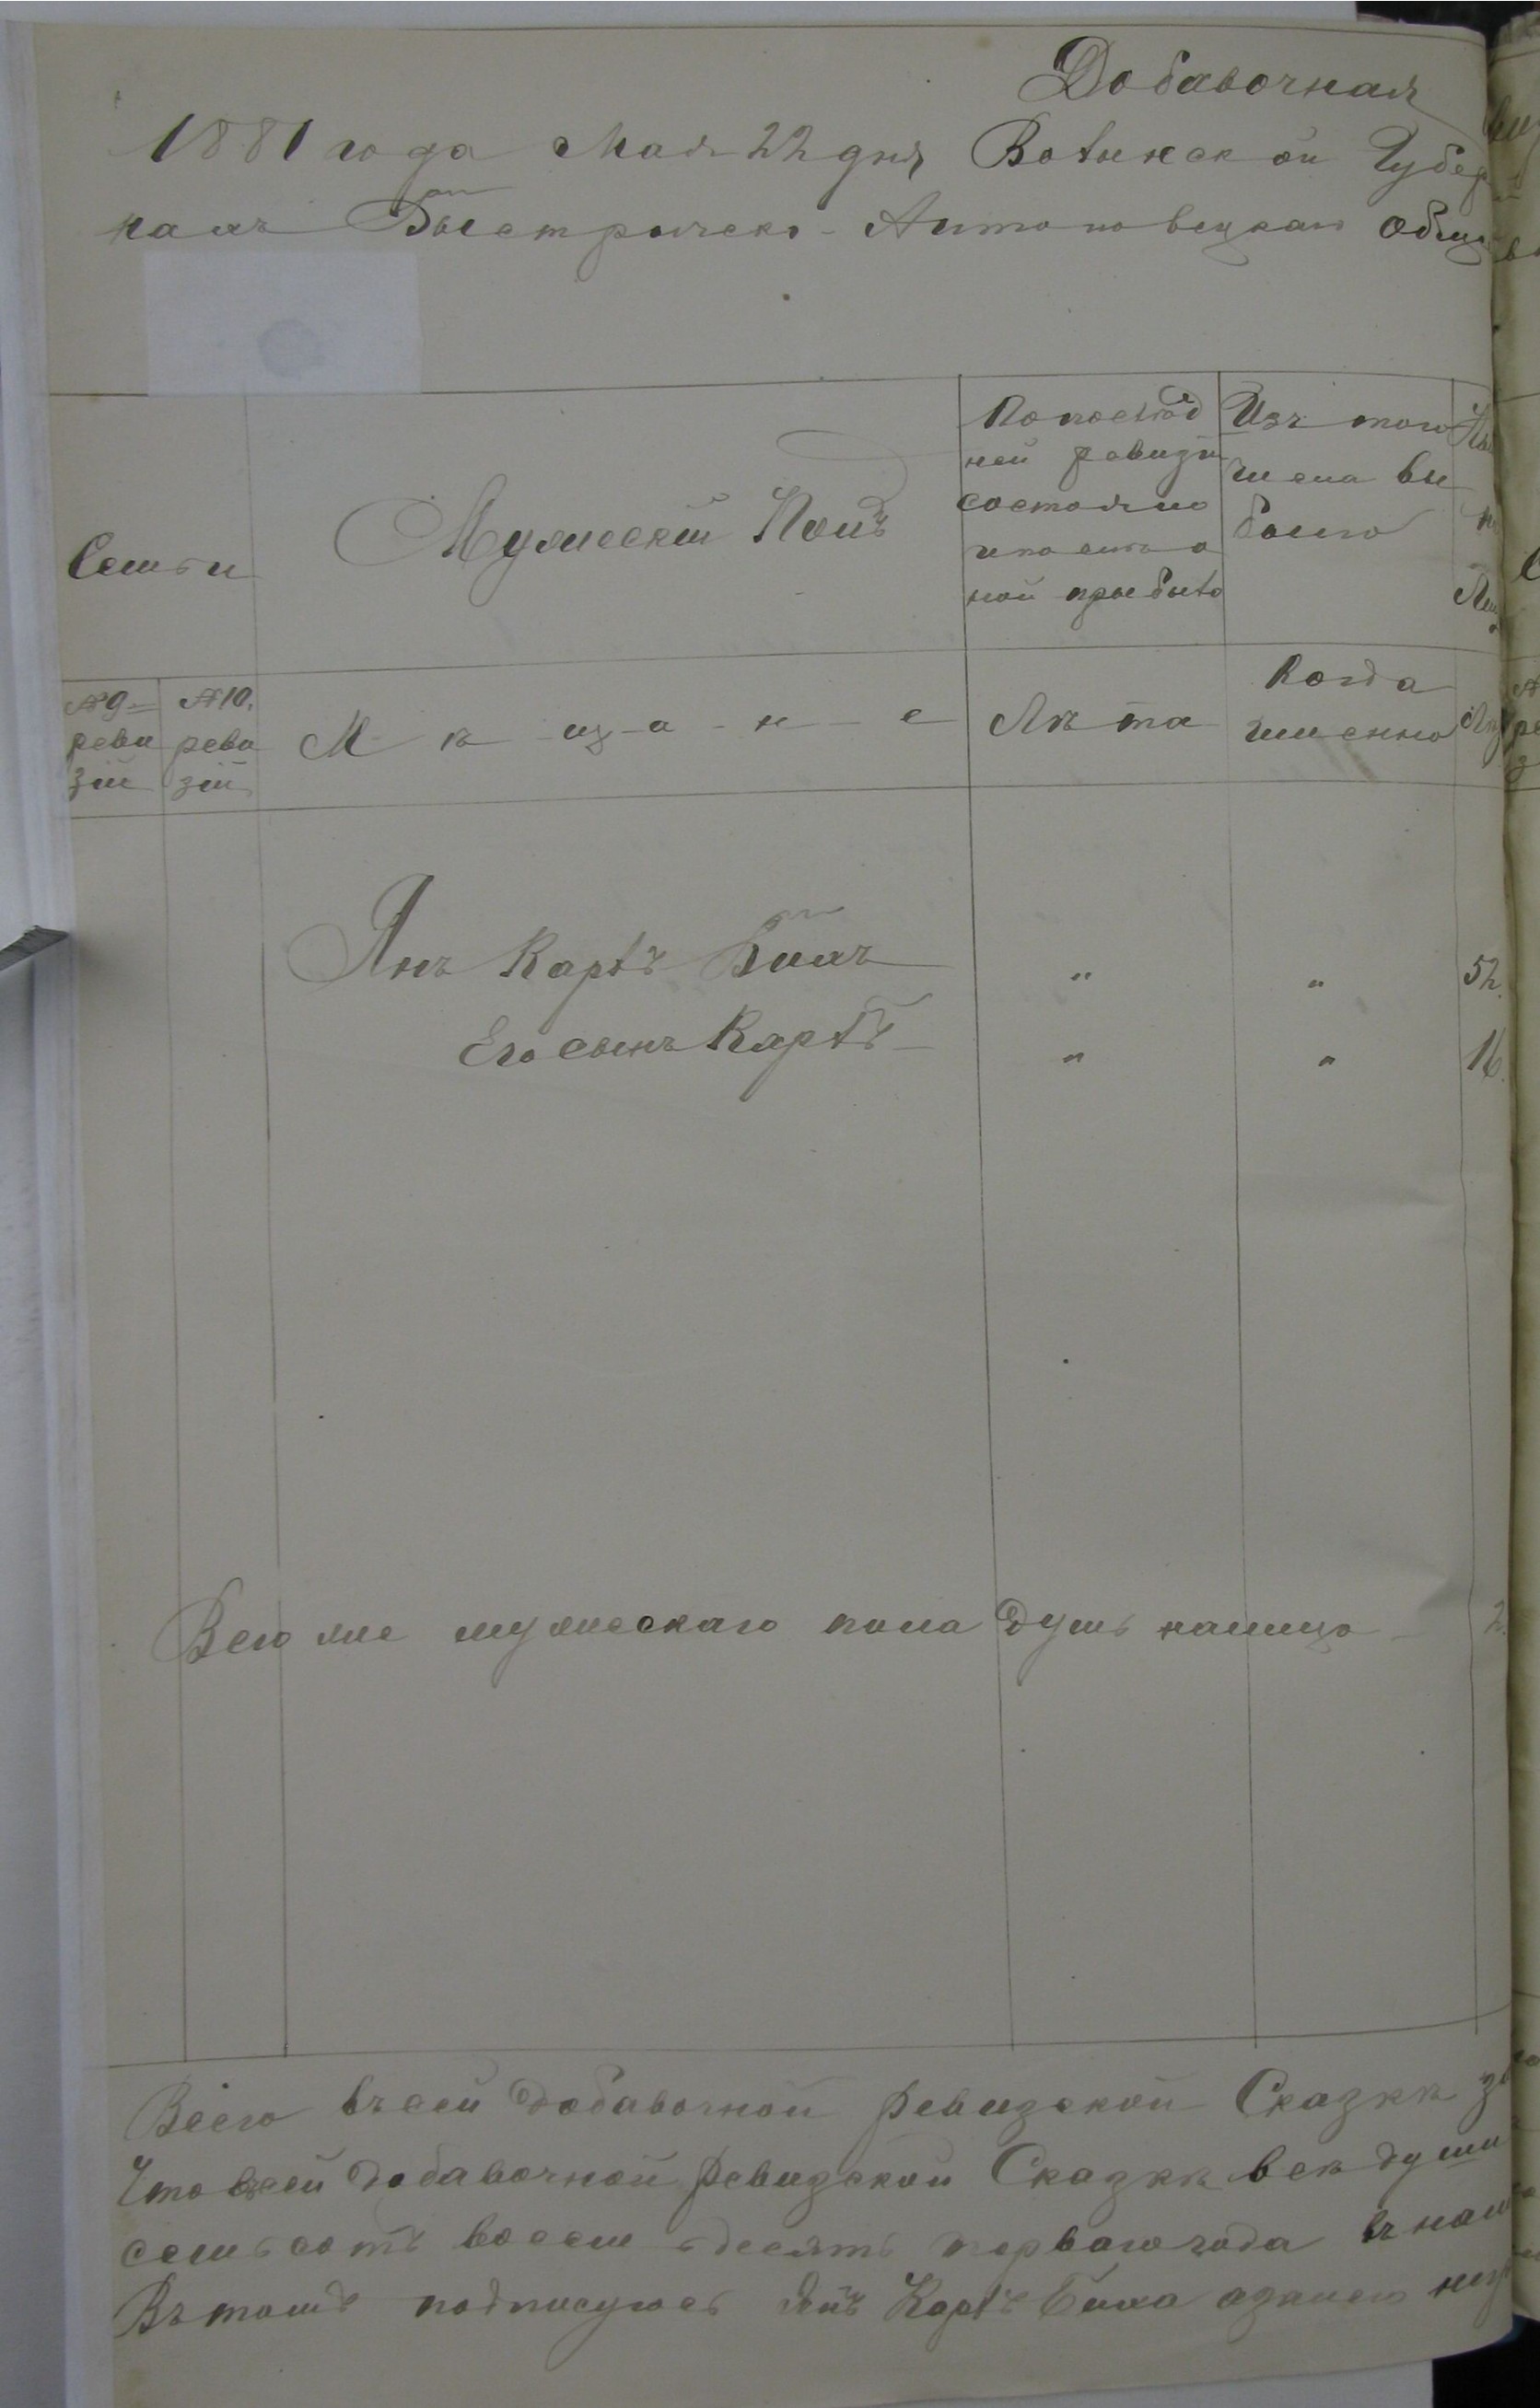 Добавочная
1881 года Мая 22 дня Волынской Губер
Быстричско-Антоновецкаго Обще
Семьи
Мужескій Полъ
По послѣд
ней ревизіи
состояло
и послѣ о
ной прибыло
Изъ того
числа вы
было
№ 9 реви зіи
№ 10. реви зіи
М ѣ - щ - а - н - е
Лѣта
Когда именно
Янъ Карлъ Билъ " " 52.
Его сынъ Карлъ " " 16.
Всего же мужескаго пола душъ налицо 2.
Всего въ сей добавочной ревизской Сказкѣ
Что въ сей добавочной ревизской Сказкѣ всѣ души
семьсотъ восемьдесятъ перваго года въ
Въ томъ подписуюсь Янъ Карлъ Била